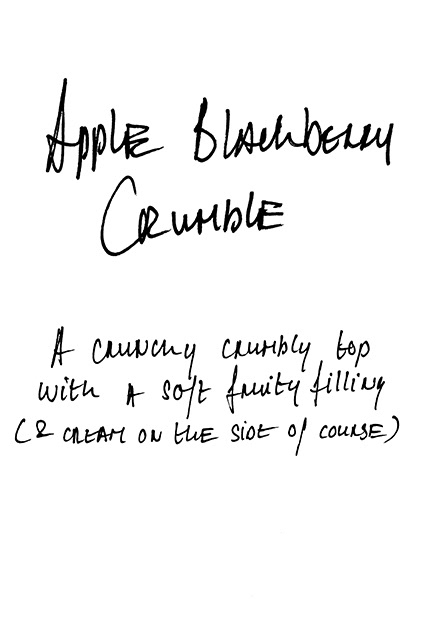 Apple Blackberry
Crumble
A crunchy crumbly top
with a soft fruity filling
(& cream on the side of course)